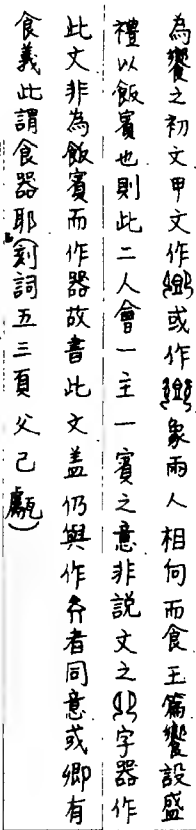 為饗之初文甲文作或作象兩人相向而食玉篇饗設盛
禮以飯賓也則此二人會一主一賓之意非說文之字器作
此文非為飯賓而作器故書此文盖仍與作者同意或卿有
食義此謂食器耶(刻詞五三頁父己甗)